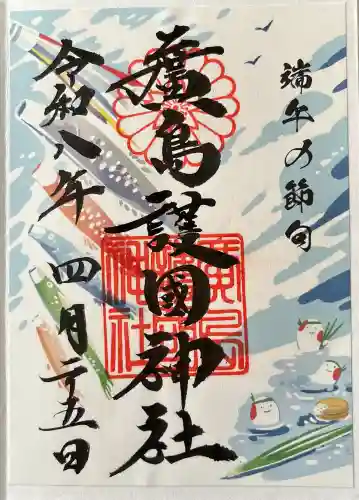 端午の節句
廣島護國神社
令和八年四月二十五日
廣島護國神社